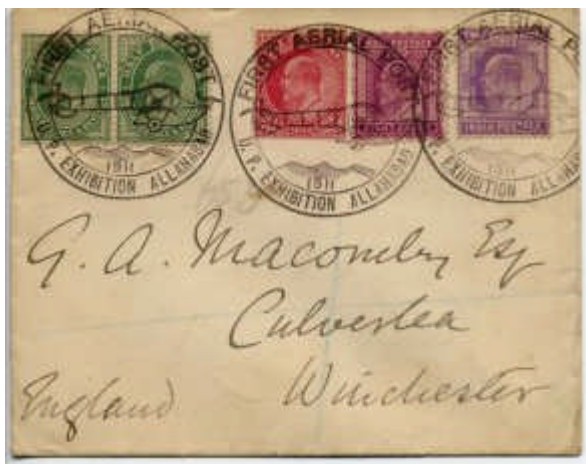 FIRST AERIAL POST
1911
U. P. EXHIBITION ALLAHABAD
FIRST AERIAL POST
1911
U. P. EXHIBITION ALLAHABAD
FIRST AERIAL P
1911
U. P. EXHIBITION ALLAHA
INDIA POSTAGE
G. A. Macomby Esq
Culverlea
Winchester
England